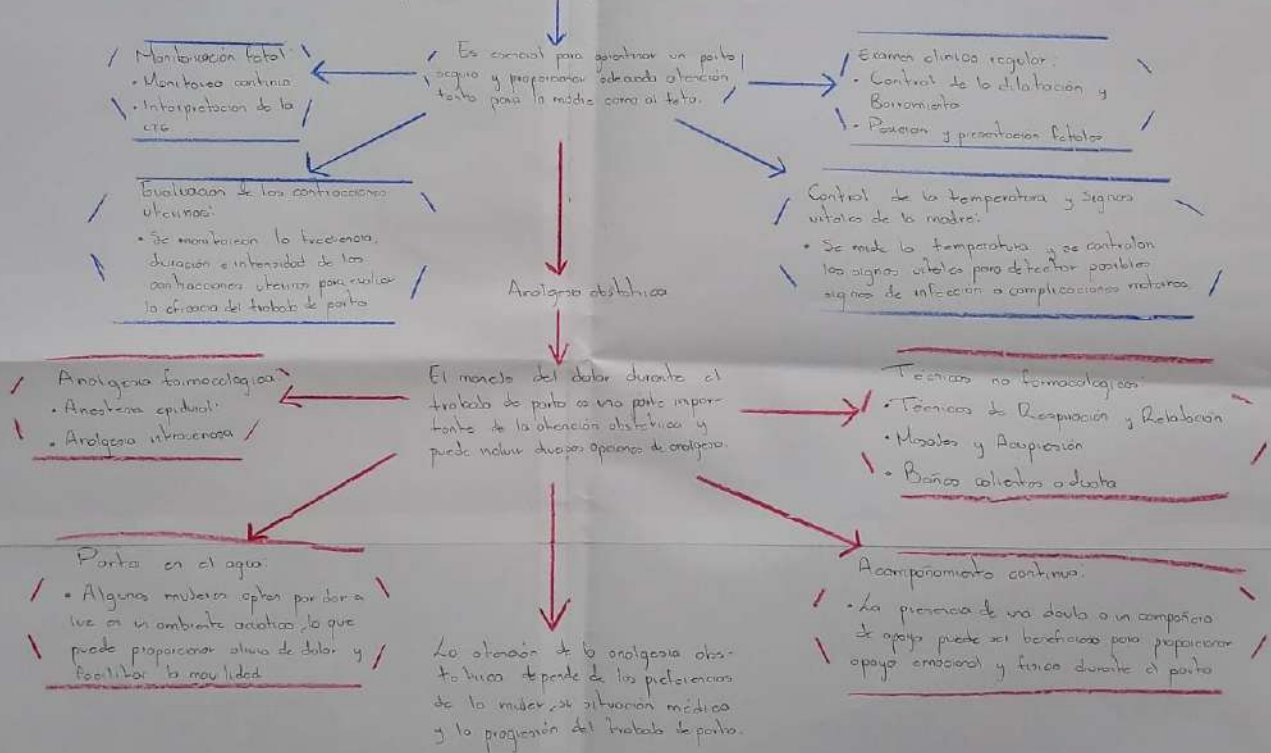 Monitorización fetal:
• Monitoreo continuo
• Interpretacion de la
CTG
Es esencial para garantizar un parto
seguro y proporcionar adecuada atención
tanto para la madre como al feto.
Examen clinico regular:
• Control de la dilatación y
Borramiento
• Posición y presentacion fetales
Evaluacion de las contracciones
uterinas:
• Se monitorean la frecuencia,
duración e intensidad de las
contracciones uterinas para evaluar
la eficacia del trabajo de parto
Control de la temperatura y signos
vitales de la madre:
• Se mide la temperatura y se controlan
los signos vitales para detectar posibles
signos de infección o complicaciones maternas.
Analgesia obstétrica
Analgesia farmacologica:
• Anestesia epidural.
• Analgesia intravenosa
El manejo del dolor durante el
trabajo de parto es una parte impor-
tante de la atención obstétrica y
puede incluir diversas opciones de analgesia.
Técnicas no farmacologicas:
• Técnicas de Respiración y Relajación
• Masajes y Acupresión
• Baños calientes o ducha
Parto en el agua.
• Algunas mujeres optan por dar a
luz en un ambiente acuatico, lo que
puede proporcionar alivio de dolor y
facilitar la movilidad
Acompañamiento continuo.
• La presencia de una doula o un compañero
de apoyo puede ser beneficioso para proporcionar
apoyo emocional y fisico durante el parto
La atención de la analgesia obs-
tetrica depende de las preferencias
de la mujer, su situación médica
y la progresión del trabajo de parto.